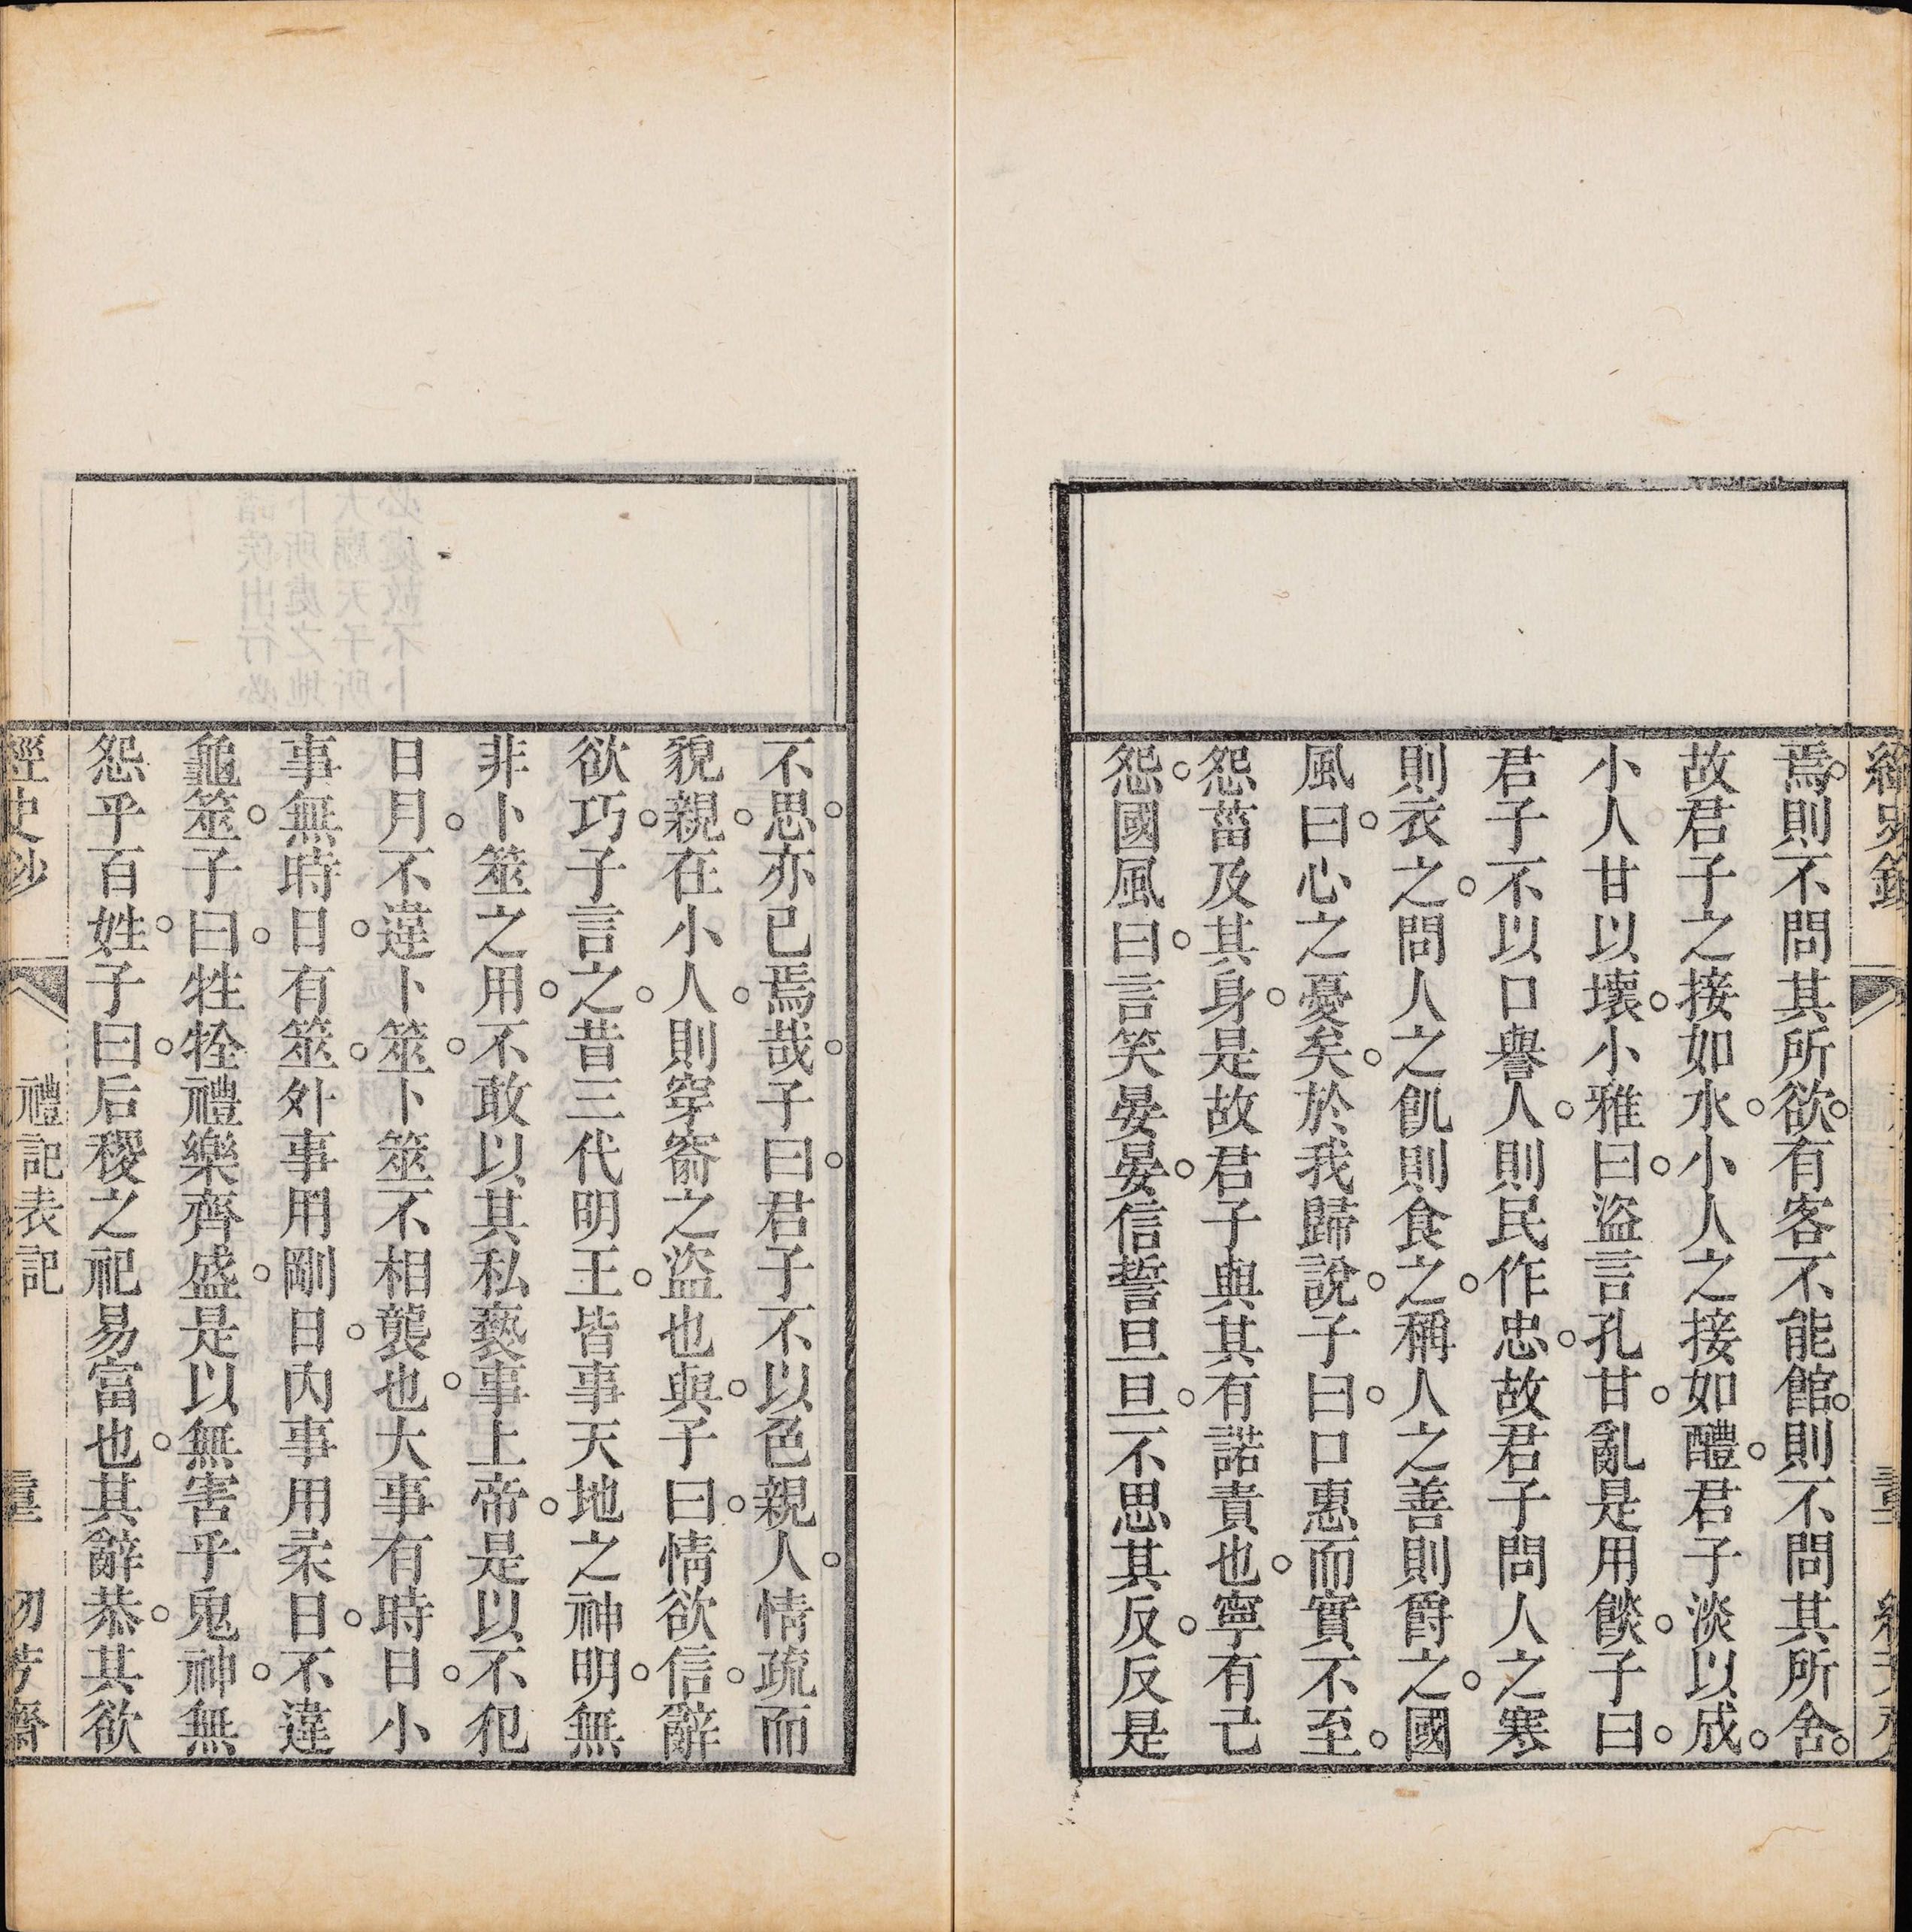 焉則不問其所欲有客不能館則不問其所舍
故君子之接如水小人之接如醴君子淡以成
小人甘以壞小雅曰盜言孔甘亂是用餤子曰
君子不以口譽人則民作忠故君子問人之寒
則衣之問人之飢則食之稱人之善則爵之國
風曰心之憂矣於我歸說子曰口惠而實不至
怨菑及其身是故君子與其有諾責也寧有已
怨國風曰言笑晏晏信誓旦旦不思其反反是
不思亦已焉哉子曰君子不以色親人情疏而
貌親在小人則穿窬之盜也與子曰情欲信辭
欲巧子言之昔三代明王皆事天地之神明無
非卜筮之用不敢以其私褻事上帝是以不犯
日月不違卜筮卜筮不相襲也大事有時日小
事無時日有筮外事用剛日內事用柔日不違
龜筮子曰牲牷禮樂齊盛是以無害乎鬼神無
怨乎百姓子曰后稷之祀易富也其辭恭其欲
經史鈔 禮記表記